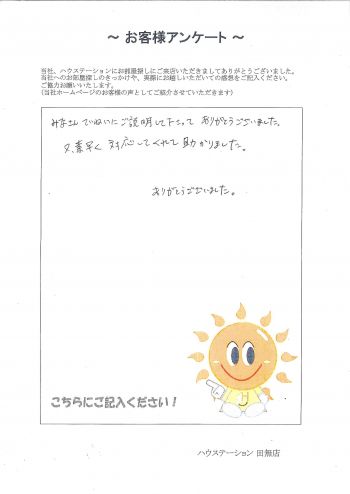 ～ お客様アンケート ～
当社、ハウステーションにお部屋探しにご来店いただきましてありがとうございました。
当社へのお部屋探しのきっかけや、実際にお越しいただいての感想をご記入ください。
ご協力お願いいたします。
(当社ホームページのお客様の声としてご紹介させていただきます)
みなさんていねいにご説明して下さって ありがとうございました。
又、素早く 対応してくれて 助かりました。
ありがとうございました。
こちらにご記入ください!
ハウステーション 田無店